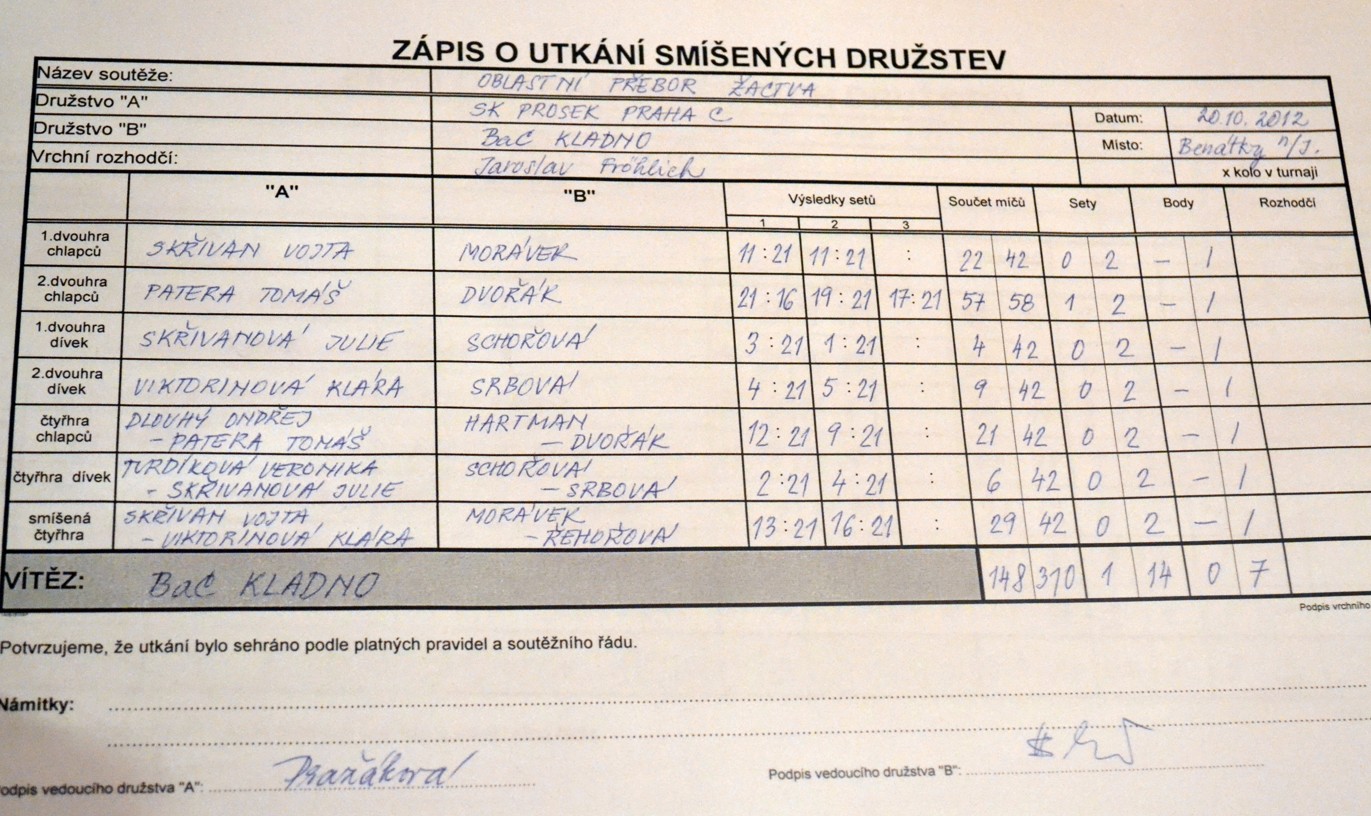 ZÁPIS O UTKÁNÍ SMÍŠENÝCH DRUŽSTEV
Název soutěže: OBLASTNÍ PŘEBOR ŽACTVA
Družstvo "A" SK PROSEK PRAHA C Datum: 20.10.2012
Družstvo "B" BaC KLADNO Místo: Benátky n/J.
Vrchní rozhodčí: Jaroslav Fröhlich x kolo v turnaji
"A" "B" Výsledky setů Součet míčů Sety Body Rozhodčí
1 2 3
1.dvouhra chlapců SKŘIVAN VOJTA MORÁVEK 11:21 11:21 : 22 42 0 2 – 1
2.dvouhra chlapců PATERA TOMÁŠ DVOŘÁK 21:16 19:21 17:21 57 58 1 2 – 1
1.dvouhra dívek SKŘIVANOVÁ JULIE SCHOŘOVÁ 3:21 1:21 : 4 42 0 2 – 1
2.dvouhra dívek VIKTORINOVÁ KLÁRA SRBOVÁ 4:21 5:21 : 9 42 0 2 – 1
čtyřhra chlapců DLOUHÝ ONDŘEJ – PATERA TOMÁŠ HARTMAN – DVOŘÁK 12:21 9:21 : 21 42 0 2 – 1
čtyřhra dívek TVRDÍKOVÁ VERONIKA - SKŘIVANOVÁ JULIE SCHOŘOVÁ – SRBOVÁ 2:21 4:21 : 6 42 0 2 – 1
smíšená čtyřhra SKŘIVAN VOJTA – VIKTORINOVÁ KLÁRA MORÁVEK – ŘEHOŘOVÁ 13:21 16:21 : 29 42 0 2 – 1
VÍTĚZ: BaC KLADNO 148 310 1 14 0 7
Podpis vrchního
Potvrzujeme, že utkání bylo sehráno podle platných pravidel a soutěžního řádu.
Námitky:
odpis vedoucího družstva "A": Pražáková Podpis vedoucího družstva "B":